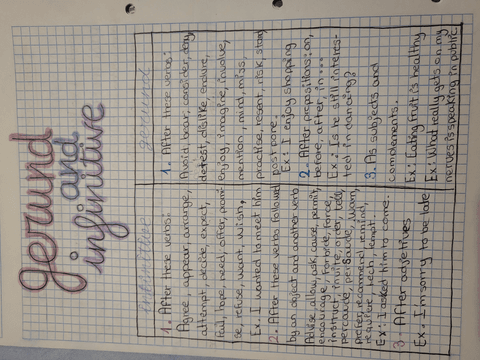 gerund
and
infinitive
infinitive
1. After these verbs:
Agree, appear, arrange,
attempt, decide, expect,
fail, hope, need, offer, promi
se, refuse, want, wish.
Ex: I wanted to meet him
2. After these verbs followed
by an object and another verb
Advise, allow, ask, cause, permit,
encourage, forbide, force,
instruct, invite, order,
percuade, persuade, warn,
prefer, recommend, remind,
requiere, teach, tempt.
Ex: I asked him to come.
3 After adjetives
Ex: I'm sorry to be late
gerund
1. After these verbs:
Avoid, bear, consider, deny,
detest, dislike, endure,
enjoy, imagine, involve,
mention, mind, miss,
practise, resent, risk, stop,
post pone.
Ex: I enjoy shopping
2. After prepositions: on,
before, after, in....
Ex: Is he still interes-
ted in canoeing?
3. As subjects and
complements.
Ex: Eating fruit is healthy
Ex: What really gets on my
nerves is speaking in public